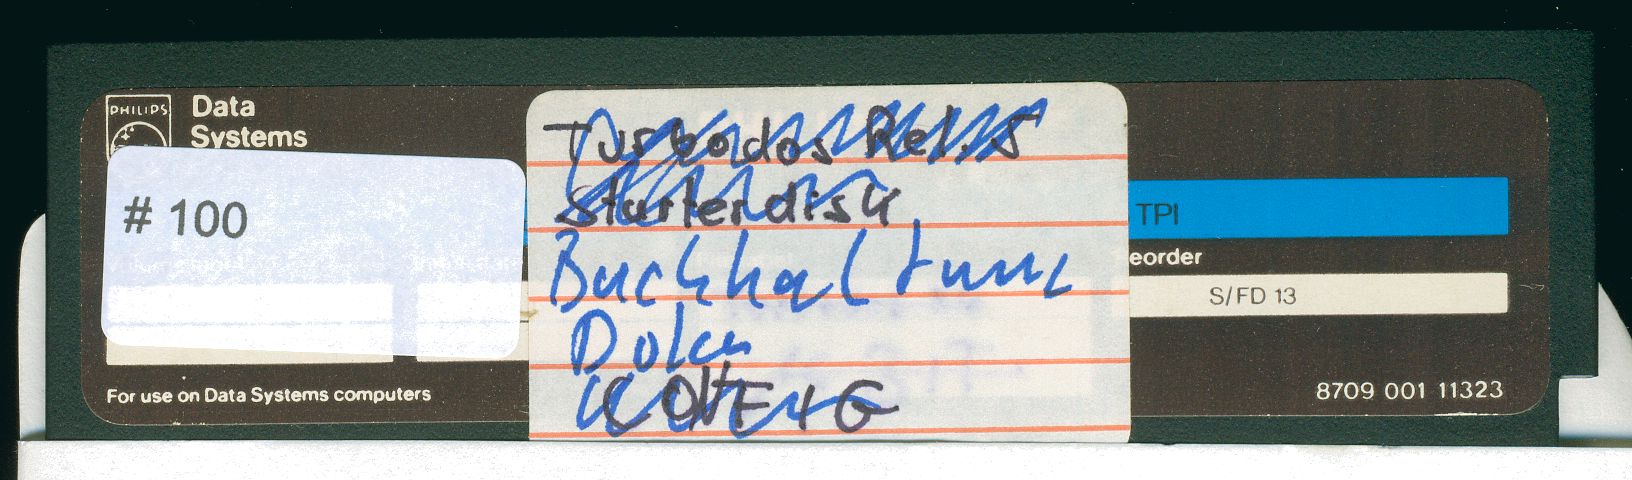 PHILIPS
Data
Systems
# 100
Turbodos Rel. 5
Starterdisk
Buchhaltung
Doku
CONFIG
TPI
eorder
S/FD 13
For use on Data Systems computers
8709 001 11323